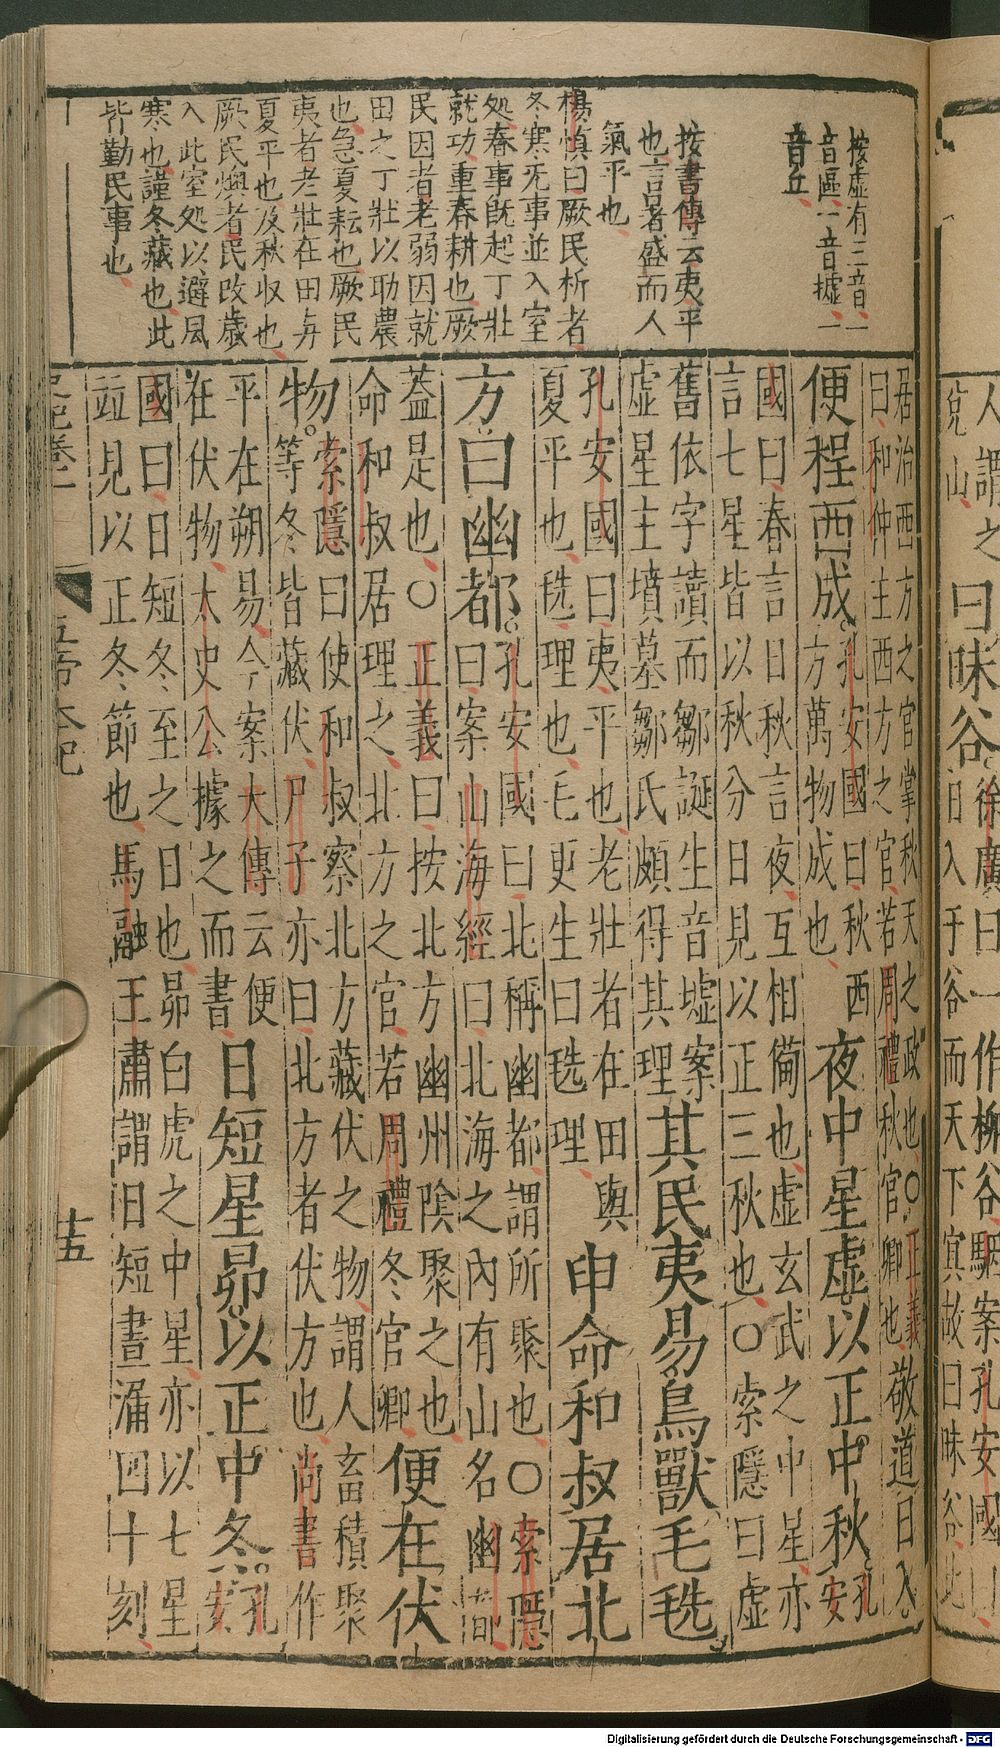 人謂之曰昧谷徐廣曰一作柳谷駰案孔安國曰
日入于谷而天下㝠故曰昧谷此
按虛有三音一
音區一音墟一
音丘
按書傳云夷平
也言老者盛而人
氣平也
楊慎曰厥民析者
冬寒无事並入室
処春事旣起丁壯
就功重春耕也厥
民因者老弱因就
田之丁壯以助農
也急夏耘也厥民
夷者老壯在田與
夏平也及秋收也
厥民燠者民改歲
入此室処以避風
寒也謹冬藏也此
皆勤民事也
居治西方之官掌秋天之政也○正義
曰和仲主西方之官若周禮秋官卿也敬道日入
便程西成孔安國曰秋西
方萬物成也夜中星虛以正中秋孔
安
國曰春言日秋言夜互相備也虛玄武之中星亦
言七星皆以秋分日見以正三秋也○索隱曰虛
舊依字讀而鄒誕生音墟案
虛星主墳墓鄒氏頗得其理其民夷易鳥獸毛毨
孔安國曰夷平也老壯者在田與
夏平也毨理也毛更生曰毨理申命和叔居北
方曰幽都孔安國曰北稱幽都謂所聚也○索隱
曰案山海經曰北海之內有山名幽都
蓋是也○正義曰按北方幽州陰聚之也
命和叔居理之北方之官若周禮冬官卿便在伏
物索隱曰使和叔察北方藏伏之物謂人畜積聚
等冬皆藏伏尸子亦曰北方者伏方也尚書作
平在朔易今案大傳云便
在伏物太史公據之而書日短星昴以正中冬孔
安
國曰日短冬至之日也昴白虎之中星亦以七星
竝見以正冬節也馬融王肅謂日短晝漏四十刻
史記卷一
五帝本紀
十五
Digitalisierung gefördert durch die Deutsche Forschungsgemeinschaft - DFG